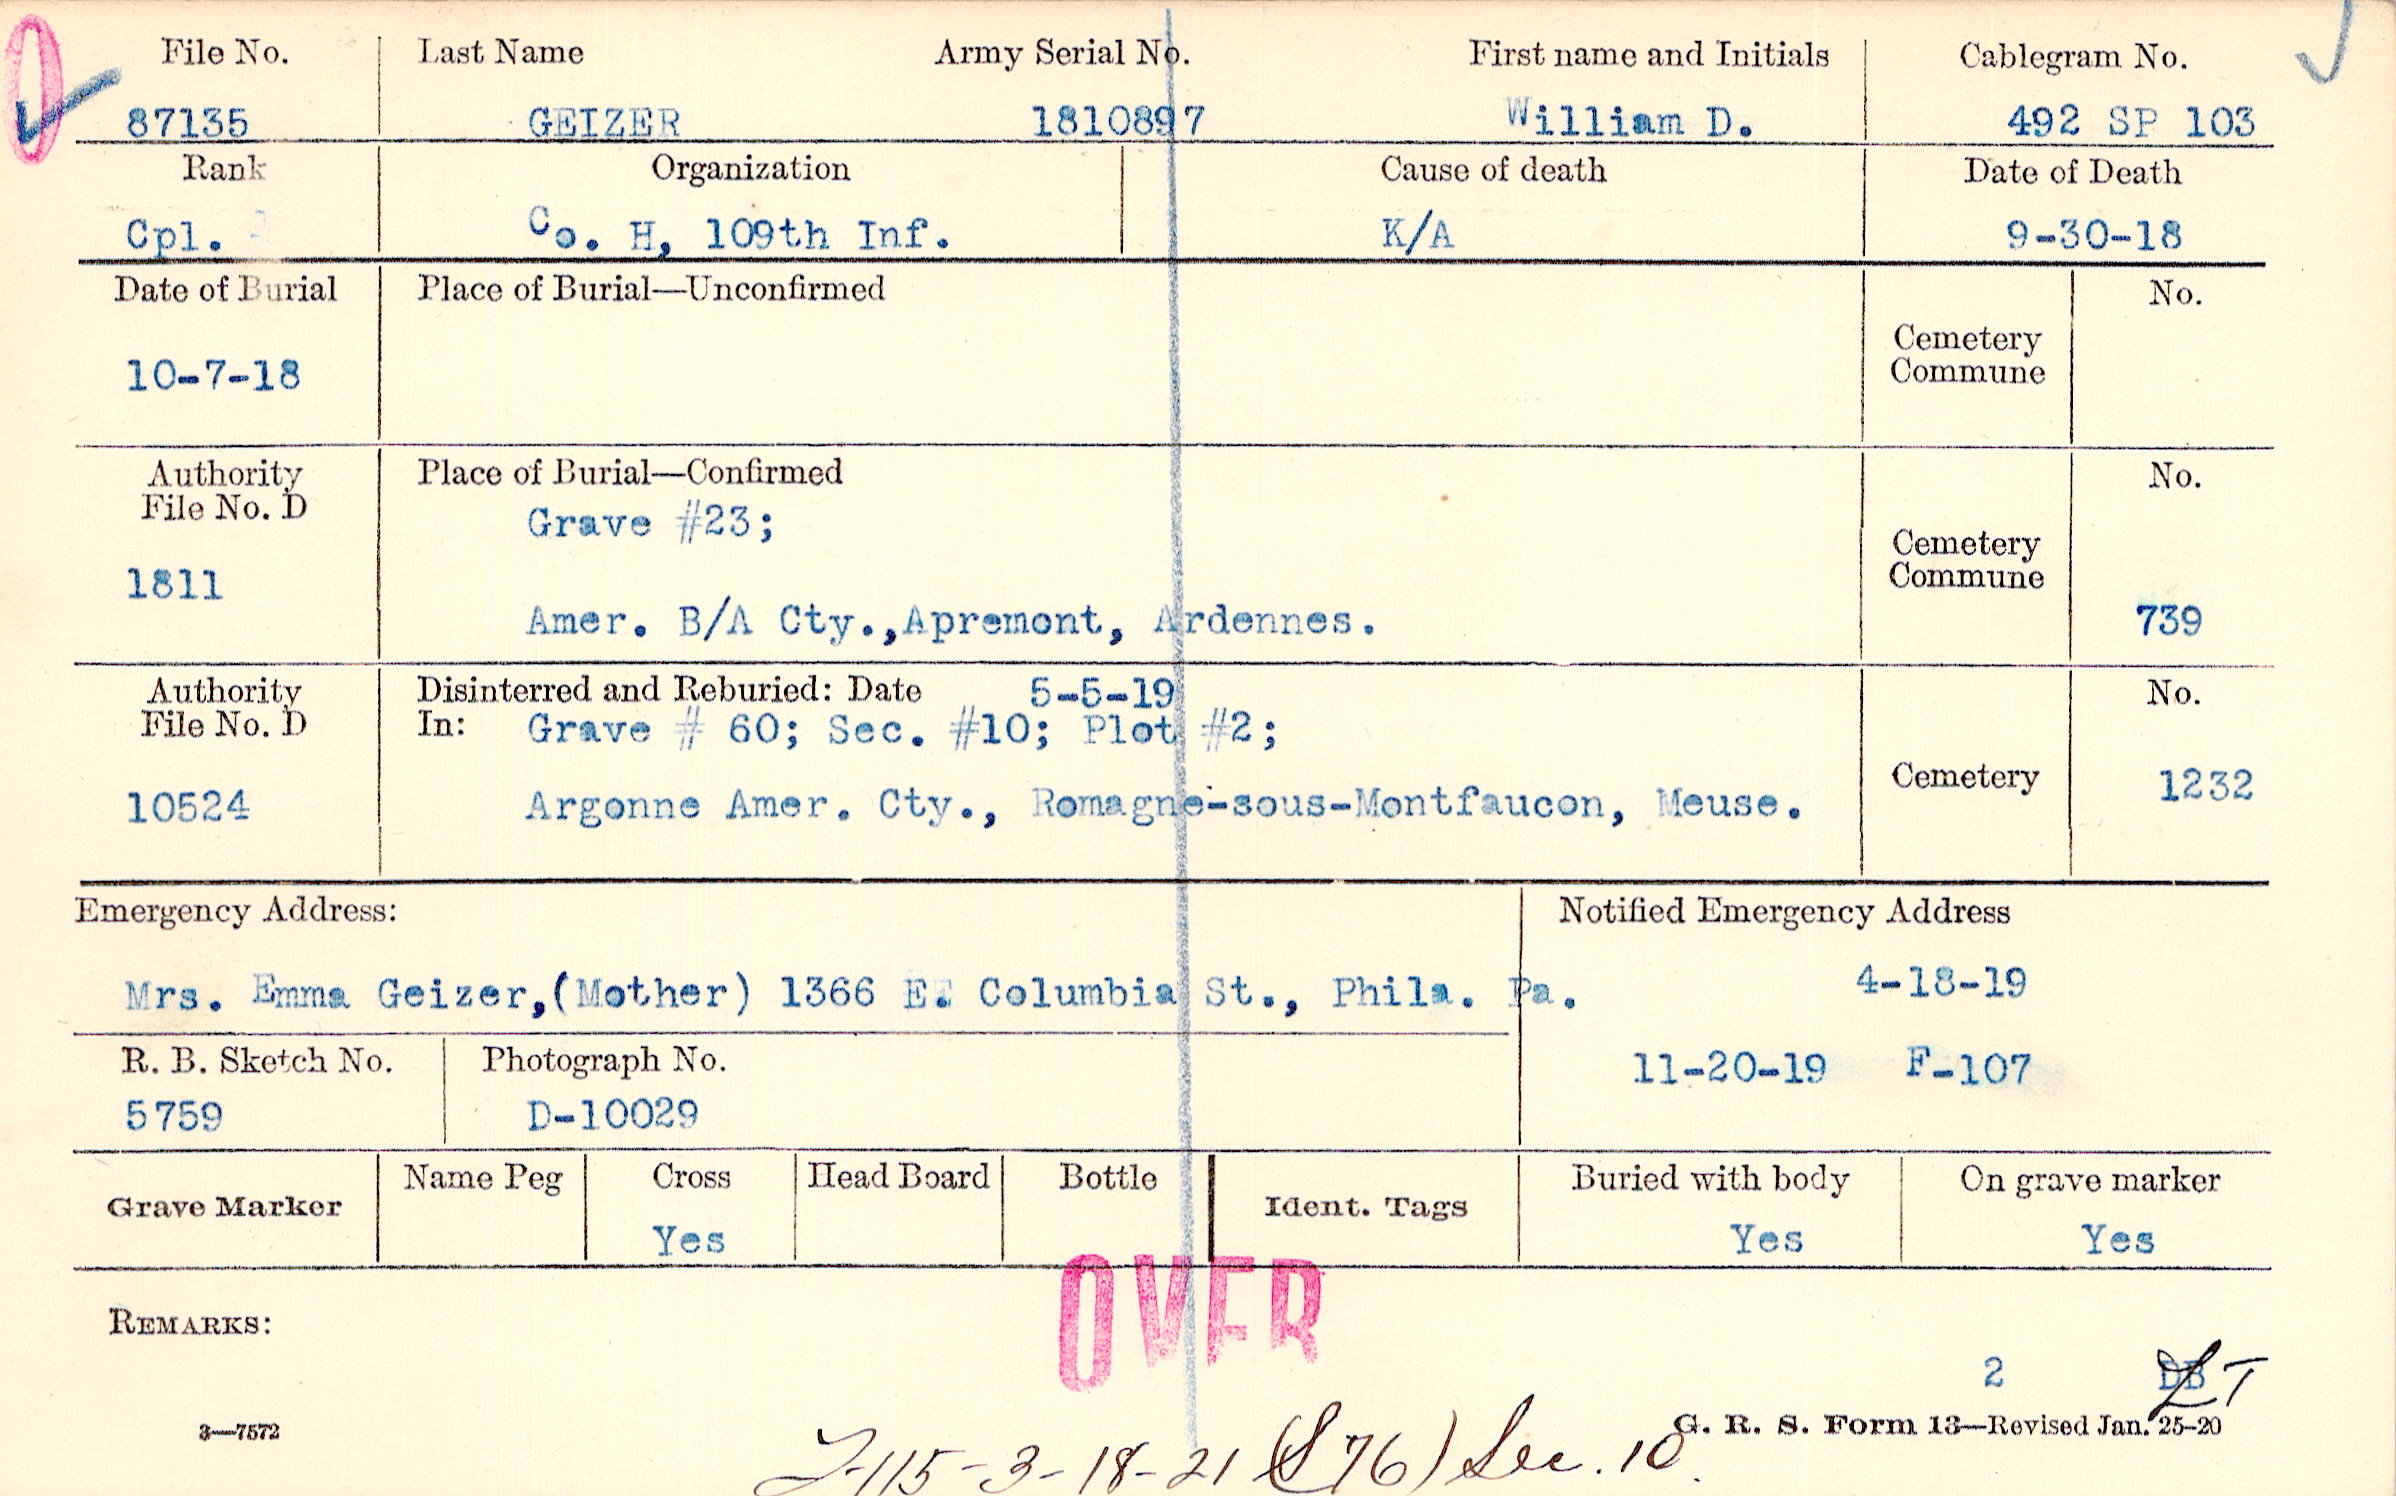 File No. Last Name Army Serial No. First name and Initials Cablegram No.
87135 GEIZER 1810897 William D. 492 SP 103
Rank Organization Cause of death Date of Death
Cpl. Co. H, 109th Inf. K/A 9-30-18
Date of Burial Place of Burial—Unconfirmed No.
Cemetery
Commune
10-7-18
Authority Place of Burial—Confirmed No.
File No. D
Grave #23;
Cemetery
Commune
1811
Amer. B/A Cty.,Apremont, Ardennes. 739
Authority Disinterred and Reburied: Date 5-5-19 No.
File No. D In: Grave # 60; Sec. #10; Plot #2;
Cemetery 1232
10524 Argonne Amer. Cty., Romagne-sous-Montfaucon, Meuse.
Emergency Address: Notified Emergency Address
Mrs. Emma Geizer,(Mother) 1366 E. Columbia St., Phila. Pa. 4-18-19
R. B. Sketch No. Photograph No. 11-20-19 F-107
5759 D-10029
Grave Marker Name Peg Cross Head Board Bottle Ident. Tags Buried with body On grave marker
Yes Yes Yes
OVER
REMARKS:
2 DB
3—7572 G. R. S. Form 13—Revised Jan. 25-20
-115-3-18-21 (S76) Sec. 10.